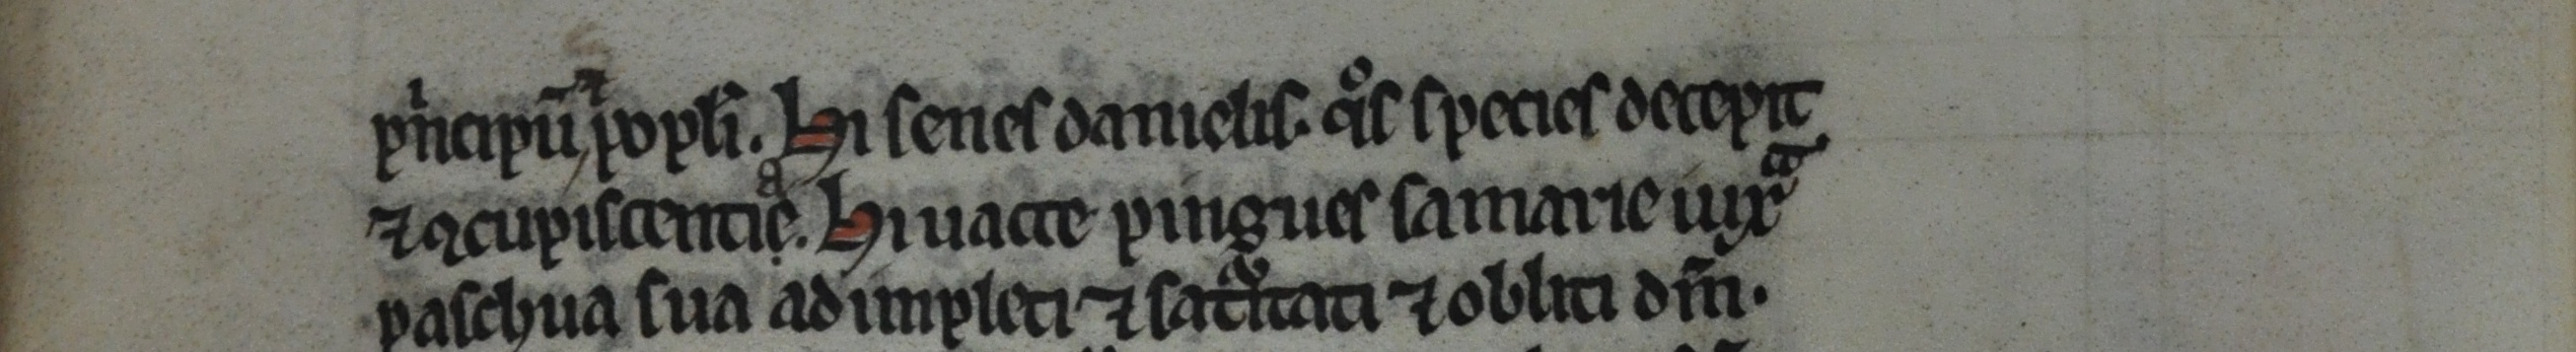 pͥncipū ⁊ popl̄i. Hi senes danielis. qͦs species decepit
⁊ ꝯcupiscentięͣ. Hi uacce pingues samarie iuxͣ
paschua sua adimpleti ⁊ satͥtati ⁊ obliti dn̄i.